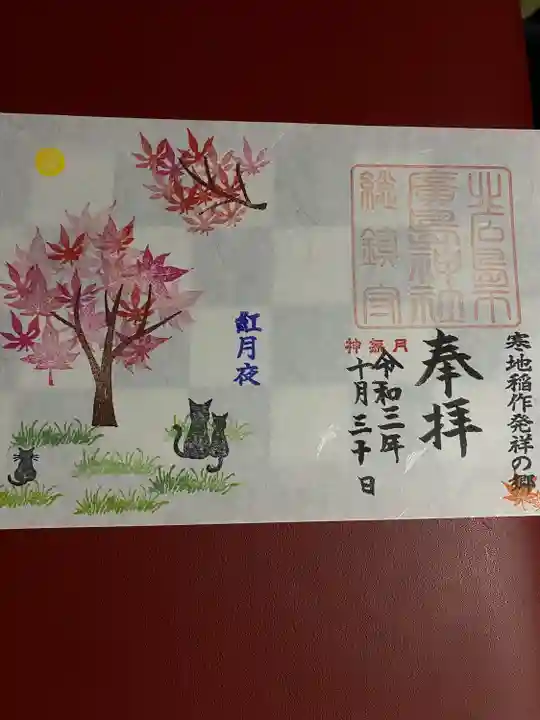 寒地稲作発祥の郷
北広島市
廣島神社
総鎮守
奉拝
神無月
令和三年
十月三十日
紅月夜